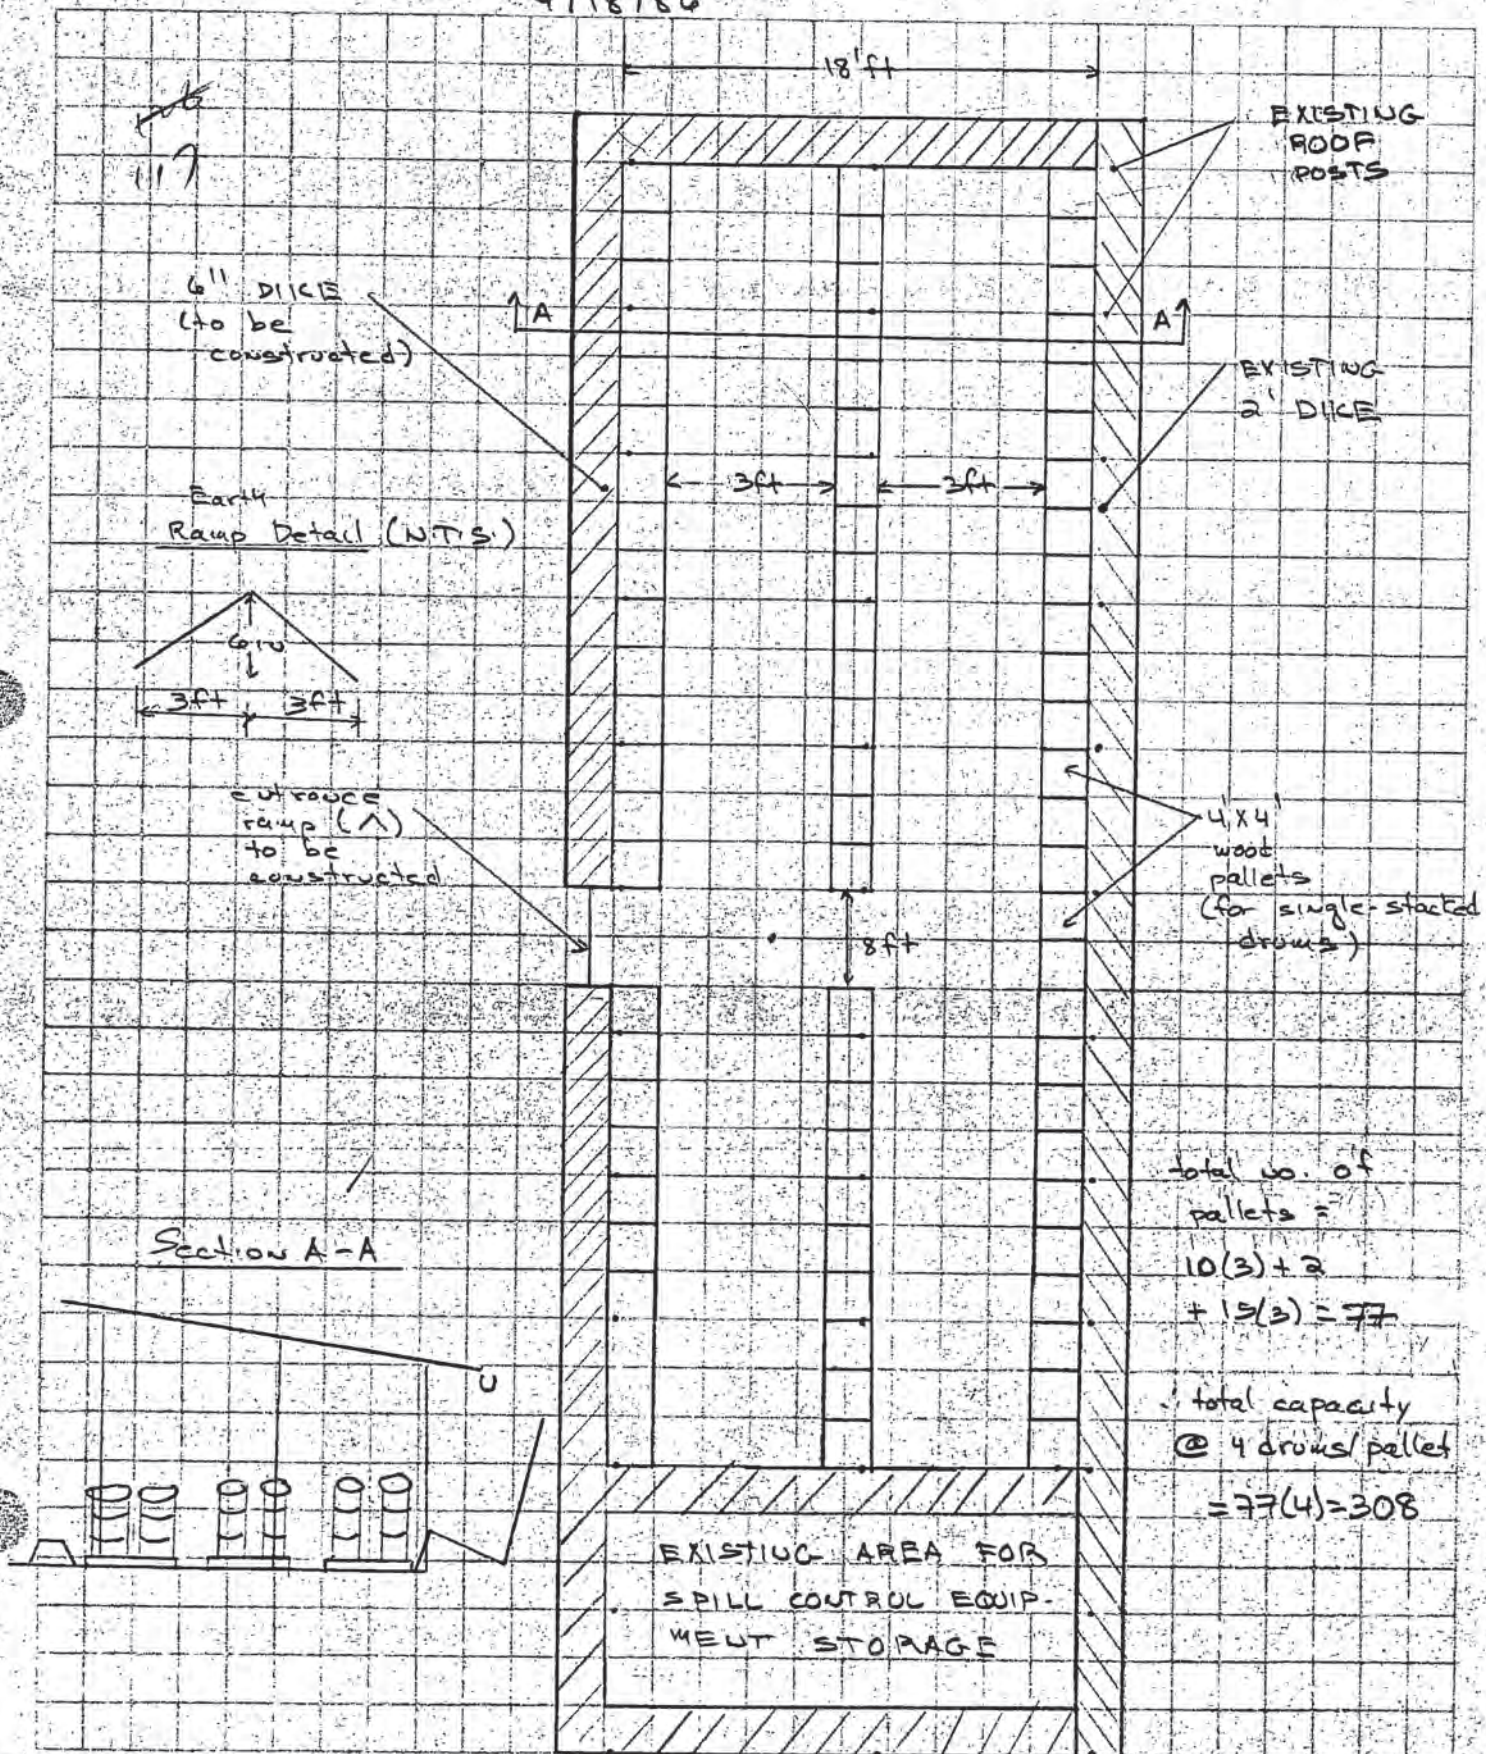 9/18/86
18' ft
EXISTING
ROOF
POSTS
6" DIKE
(to be
constructed)
A
A
EXISTING
2' DIKE
3ft
3ft
Earth
Ramp Detail (N.T.S.)
6 IN
3ft
3ft
entrance
ramp (^)
to be
constructed
4'X4'
wood
pallets
(for single-stacked
drums)
8ft
total no. of
pallets =
10(3)+2
+ 15(3) = 77
Section A-A
total capacity
@ 4 drums/pallet
=77(4)=308
EXISTING AREA FOR
SPILL CONTROL EQUIP-
MENT STORAGE